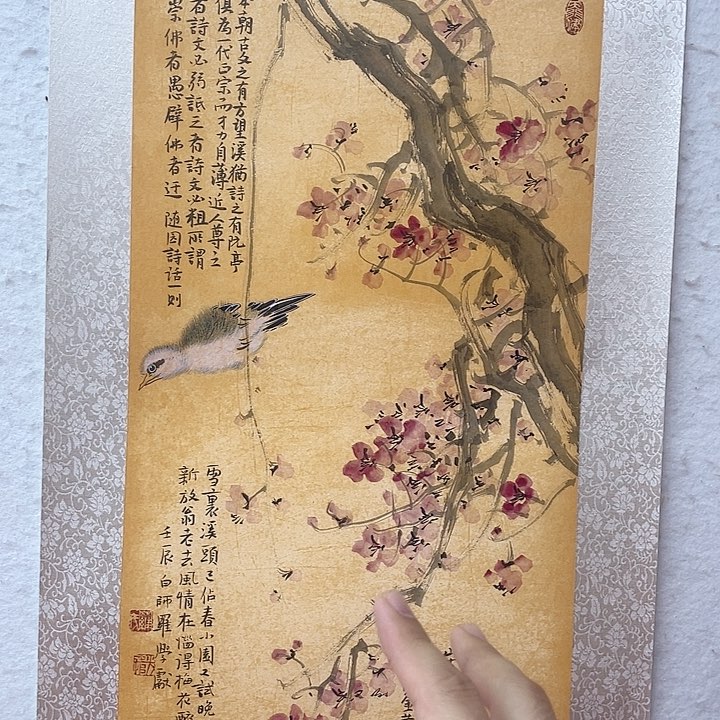 本朝古文之有方望溪猶詩之有阮亭
俱為一代正宗而才力自薄近人尊之
者詩文必弱詆之者詩文必粗所謂
崇佛者愚闢佛者迂 随园詩话一则
雪裏溪頭已佔春小園又試晚
新放翁老去風情在惱得梅花醉
壬辰白師羅